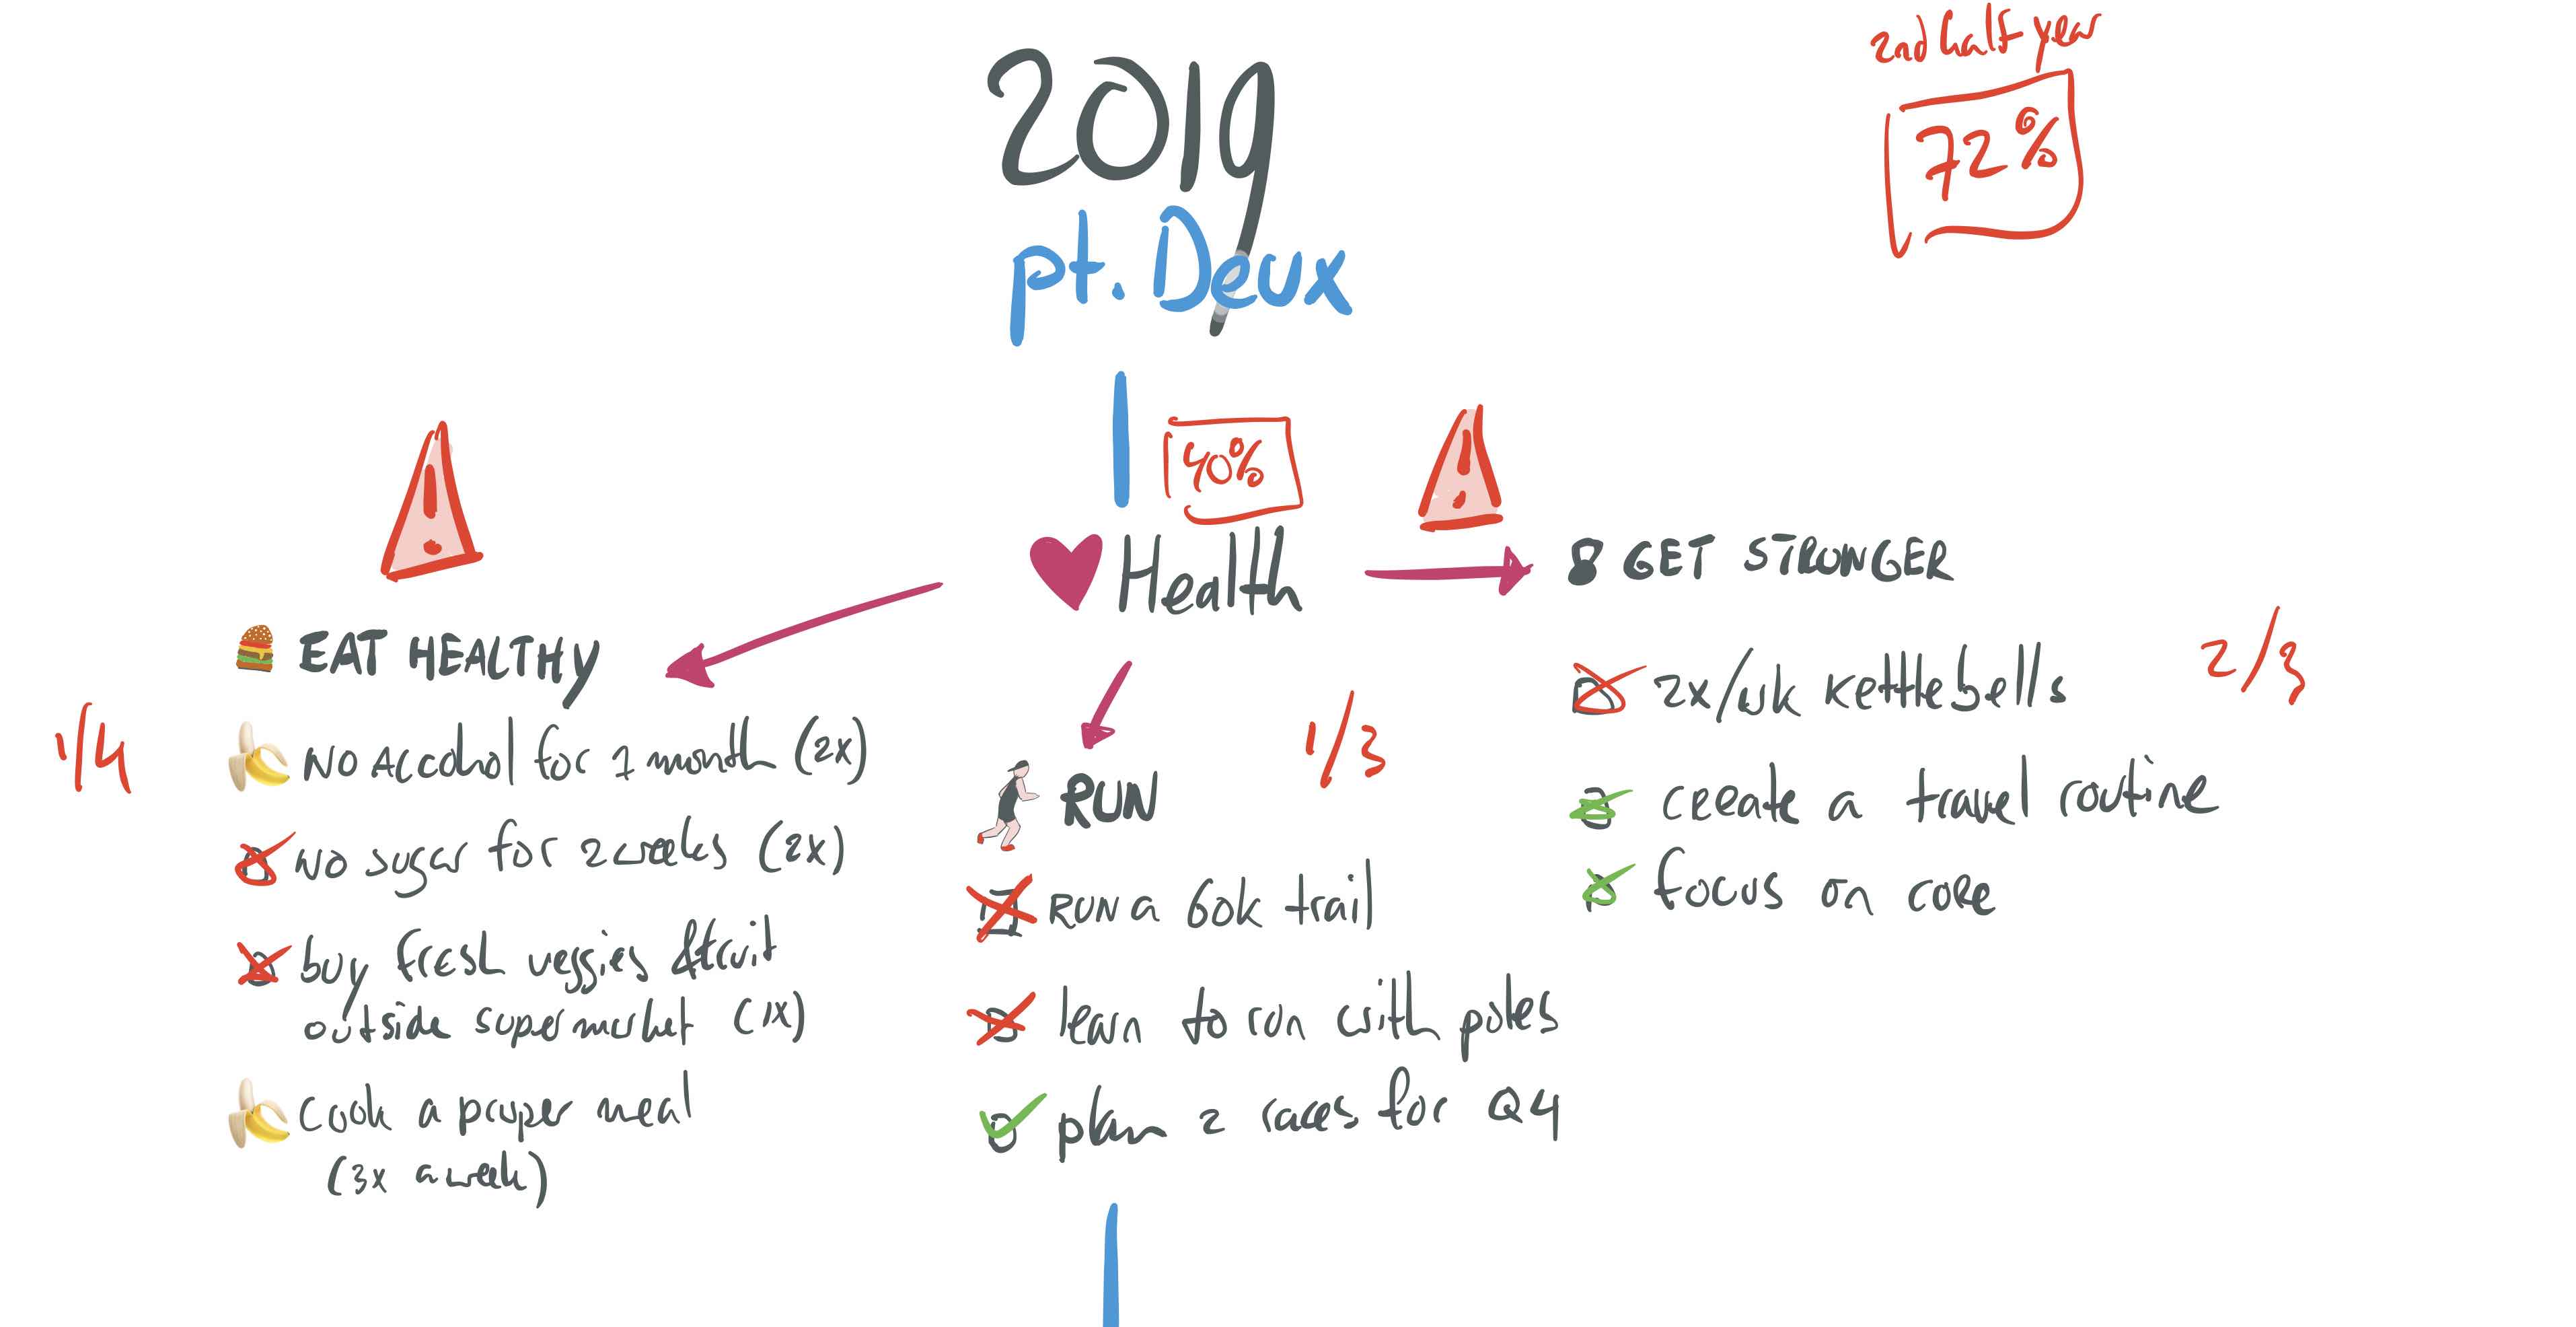 2nd half year
72%
2019
pt. Deux
40%
Health
EAT HEALTHY
1/4
NO Alcohol for 1 month (2x)
NO sugar for 2 weeks (2x)
buy fresh veggies & fruit
outside supermarket (1x)
cook a proper meal
(3x a week)
RUN
1/3
RUN a 60k trail
learn to run with poles
plan 2 races for Q4
GET STRONGER
2/3
2x/wk kettlebells
create a travel routine
focus on core